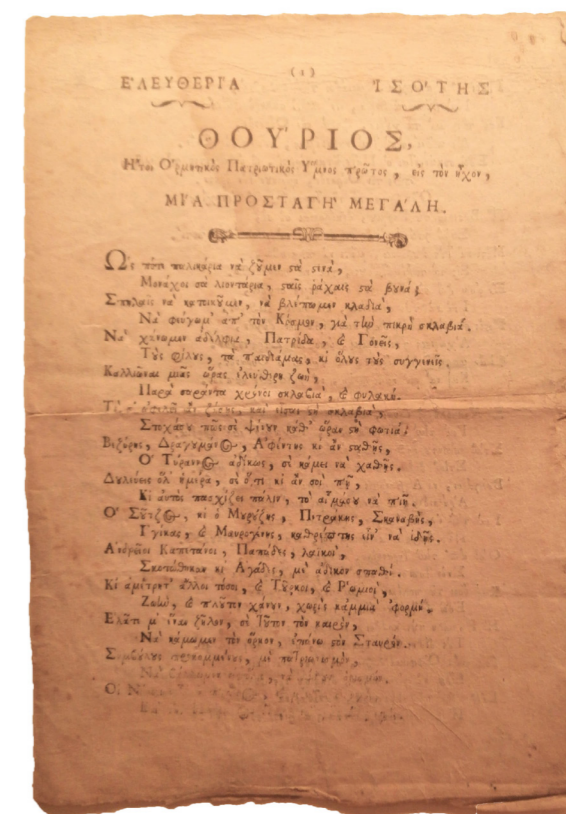 (1)
ΕʼΛΕΥΘΕΡΓΑ ἸΣΟʹΤΗΣ
ΘΟΥʹΡΙΟΣ,
Ἤτοι Ὁρμητικὸς Πατριωτικὸς Ὕμνος πρῶτος, εἰς τὸν ἦχον,
ΜΙʹΑ ΠΡΟΣΤΑΓΗʹ ΜΕΓΑʹΛΗ.
Ὡς πότε παλικάρια νὰ ζῦμεν ϛὰ ϛενὰ,
Μονάχοι σὰ λιοντάρια, ϛαῖς ράχαις ϛὰ βυνά;
Σπηλαῖς νὰ κατοικῦμεν, νὰ βλέπωμεν κλαδιὰ,
Νὰ φεύγωμ' ἀπ' τὸν Κόσμον, γιὰ τὴν πικρὴ σκλαβιά.
Νὰ χάνωμεν ἀδέλφια, Πατρίδα, ϗ Γονεῖς,
Τὺς φίλυς, τὰ παιδιάμας, κι ὅλυς τὺς συγγενεῖς.
Καλλιῶναι μιᾶς ὥρας ἐλεύθερη ζωὴ,
Παρὰ σαράντα χρόνοι σκλαβιὰ, ϗ φυλακή.
Τί σ' ὠφελεῖ ἂν ζήσῃς, καὶ εἶσαι ϛὴ σκλαβιὰ,
Στοχάσυ πῶς σὲ ψένυν καθ' ὥραν ϛὴ φωτιά;
Βεζύρης, Δραγυμάνος, Ἀφέντης κι ἂν ϛαθῇς,
Ὁ Τύραννος ἀδίκως, σὲ κάμει νὰ χαθῇς.
Δυλεύεις ὅλ' ἡμέρα, σὲ ὅ,τι κι ἂν σοὶ πῇ,
Κι αὐτὸς πασχίζει πάλιν, τὸ αἷμάσυ νὰ πιῇ.
Ὁ Σῦτζος, κι ὁ Μυρύζης, Πετράκης, Σκαναβῆς,
Γγίκας, ϗ Μαυρογένης, καθρέπτης εἶν' νὰ ἰδῇς.
Ἀνδρεῖοι Καπετάνοι, Παπάδες, λαϊκοὶ,
Σκοτώθηκαν κι Ἀγάδες, μὲ ἄδικον σπαθί.
Κι ἀμέτρητ' ἄλλοι τόσοι, ϗ Τῦρκοι, ϗ Ῥωμιοὶ,
Ζωὴν, ϗ πλῦτον χάνυν, χωρὶς κάμμιὰ 'φορμή.
Ἐλᾶτε μ' ἕναν ζῆλον, σὲ τῦτον τὸν καιρὸν,
Νὰ κάμωμεν τὸν ὅρκον, ἐπάνω ϛὸν Σταυρόν.
Συμβύλυς προκομμένυς, μὲ πατριωτισμὸν,